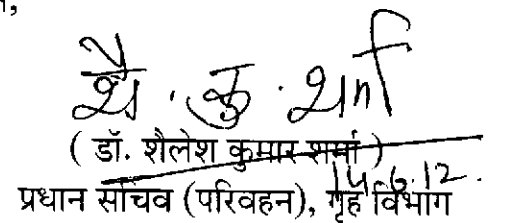 ,
शै. कु. शर्मा
( डॉ. शैलेश कुमार शर्मा )
14.6.12.
प्रधान सचिव (परिवहन), गृह विभाग